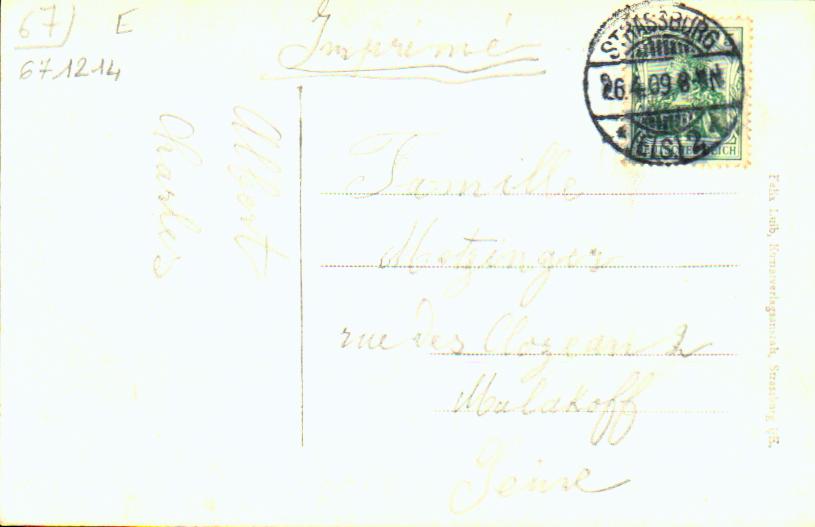 67) E
67 12 14
Imprimé
STRASSBURG
26.4.09 8-9N
* (ELS) 2 *
REICH
Albert
Charles
Famille
Metzinger
rue des Clozeau 2
Malakoff
Seine
Felix Luib, Kunstverlagsanstalt, Strassburg i/E.